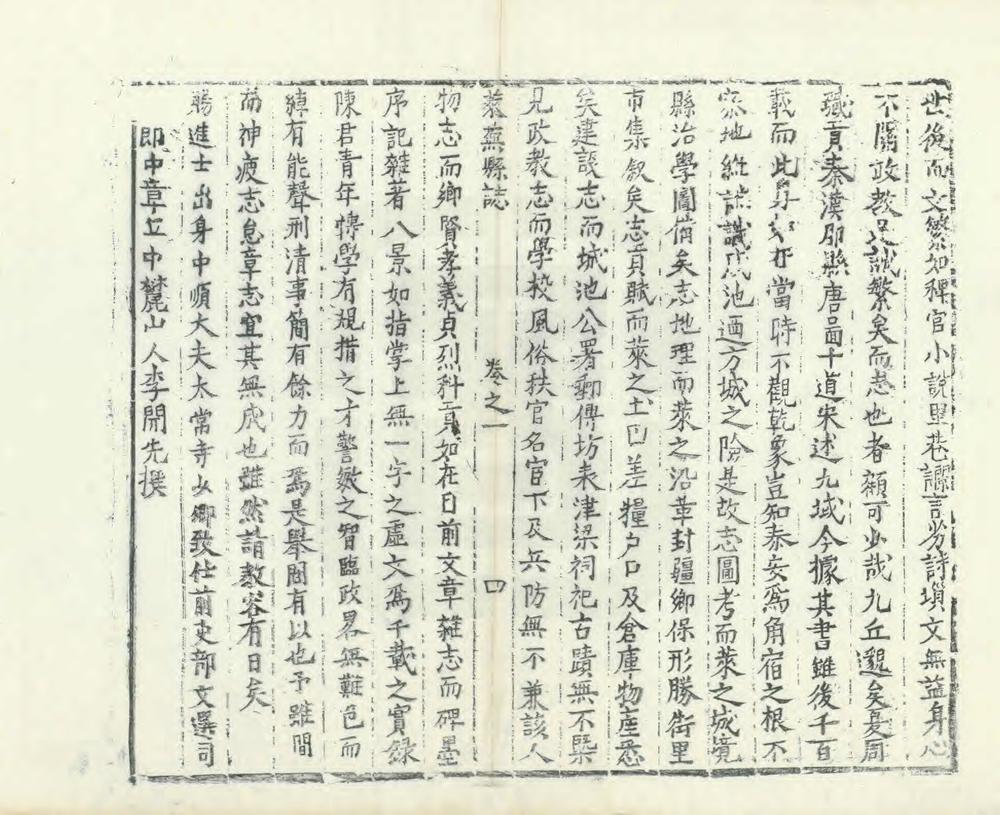 世後而文繁如稗官小說里巷謠言劣詩墳文無益身心
不關政教足誠繁矣而志也者顧可少哉九丘邈矣憂周
職貢秦漢郡縣唐畐十道宋述九域今據其書雖後千百
載而此身如在當時不觀乾象豈知泰安為角宿之根不
察地維詎識成池迺方城之險是故志圖考而萊之城境
縣治學圖備矣志地理而萊之沿革封疆鄉保形勝街里
市集敘矣志貢賦而萊之土田差糧戶口及倉庫物產悉
矣建設志而城池公署郵傳坊表津梁祠祀古蹟無不槩
見政教志而學校風俗秩官名宦下及兵防無不兼該人
萊蕪縣誌 卷之一 四
物志而鄉賢孝義貞烈科貢如在目前文章雜志而碑墨
序記雜著八景如指掌上無一字之虛文為千載之實錄
陳君青年博學有規措之才警敏之智臨政畧無難色而
績有能聲刑清事簡有餘力而為是舉固有以也予雖間
而神疲志怠章志宜其無成也雖然請教容有日矣
賜進士出身中順大夫太常寺少卿致仕前吏部文選司
郎中章丘中麓山人李開先撰